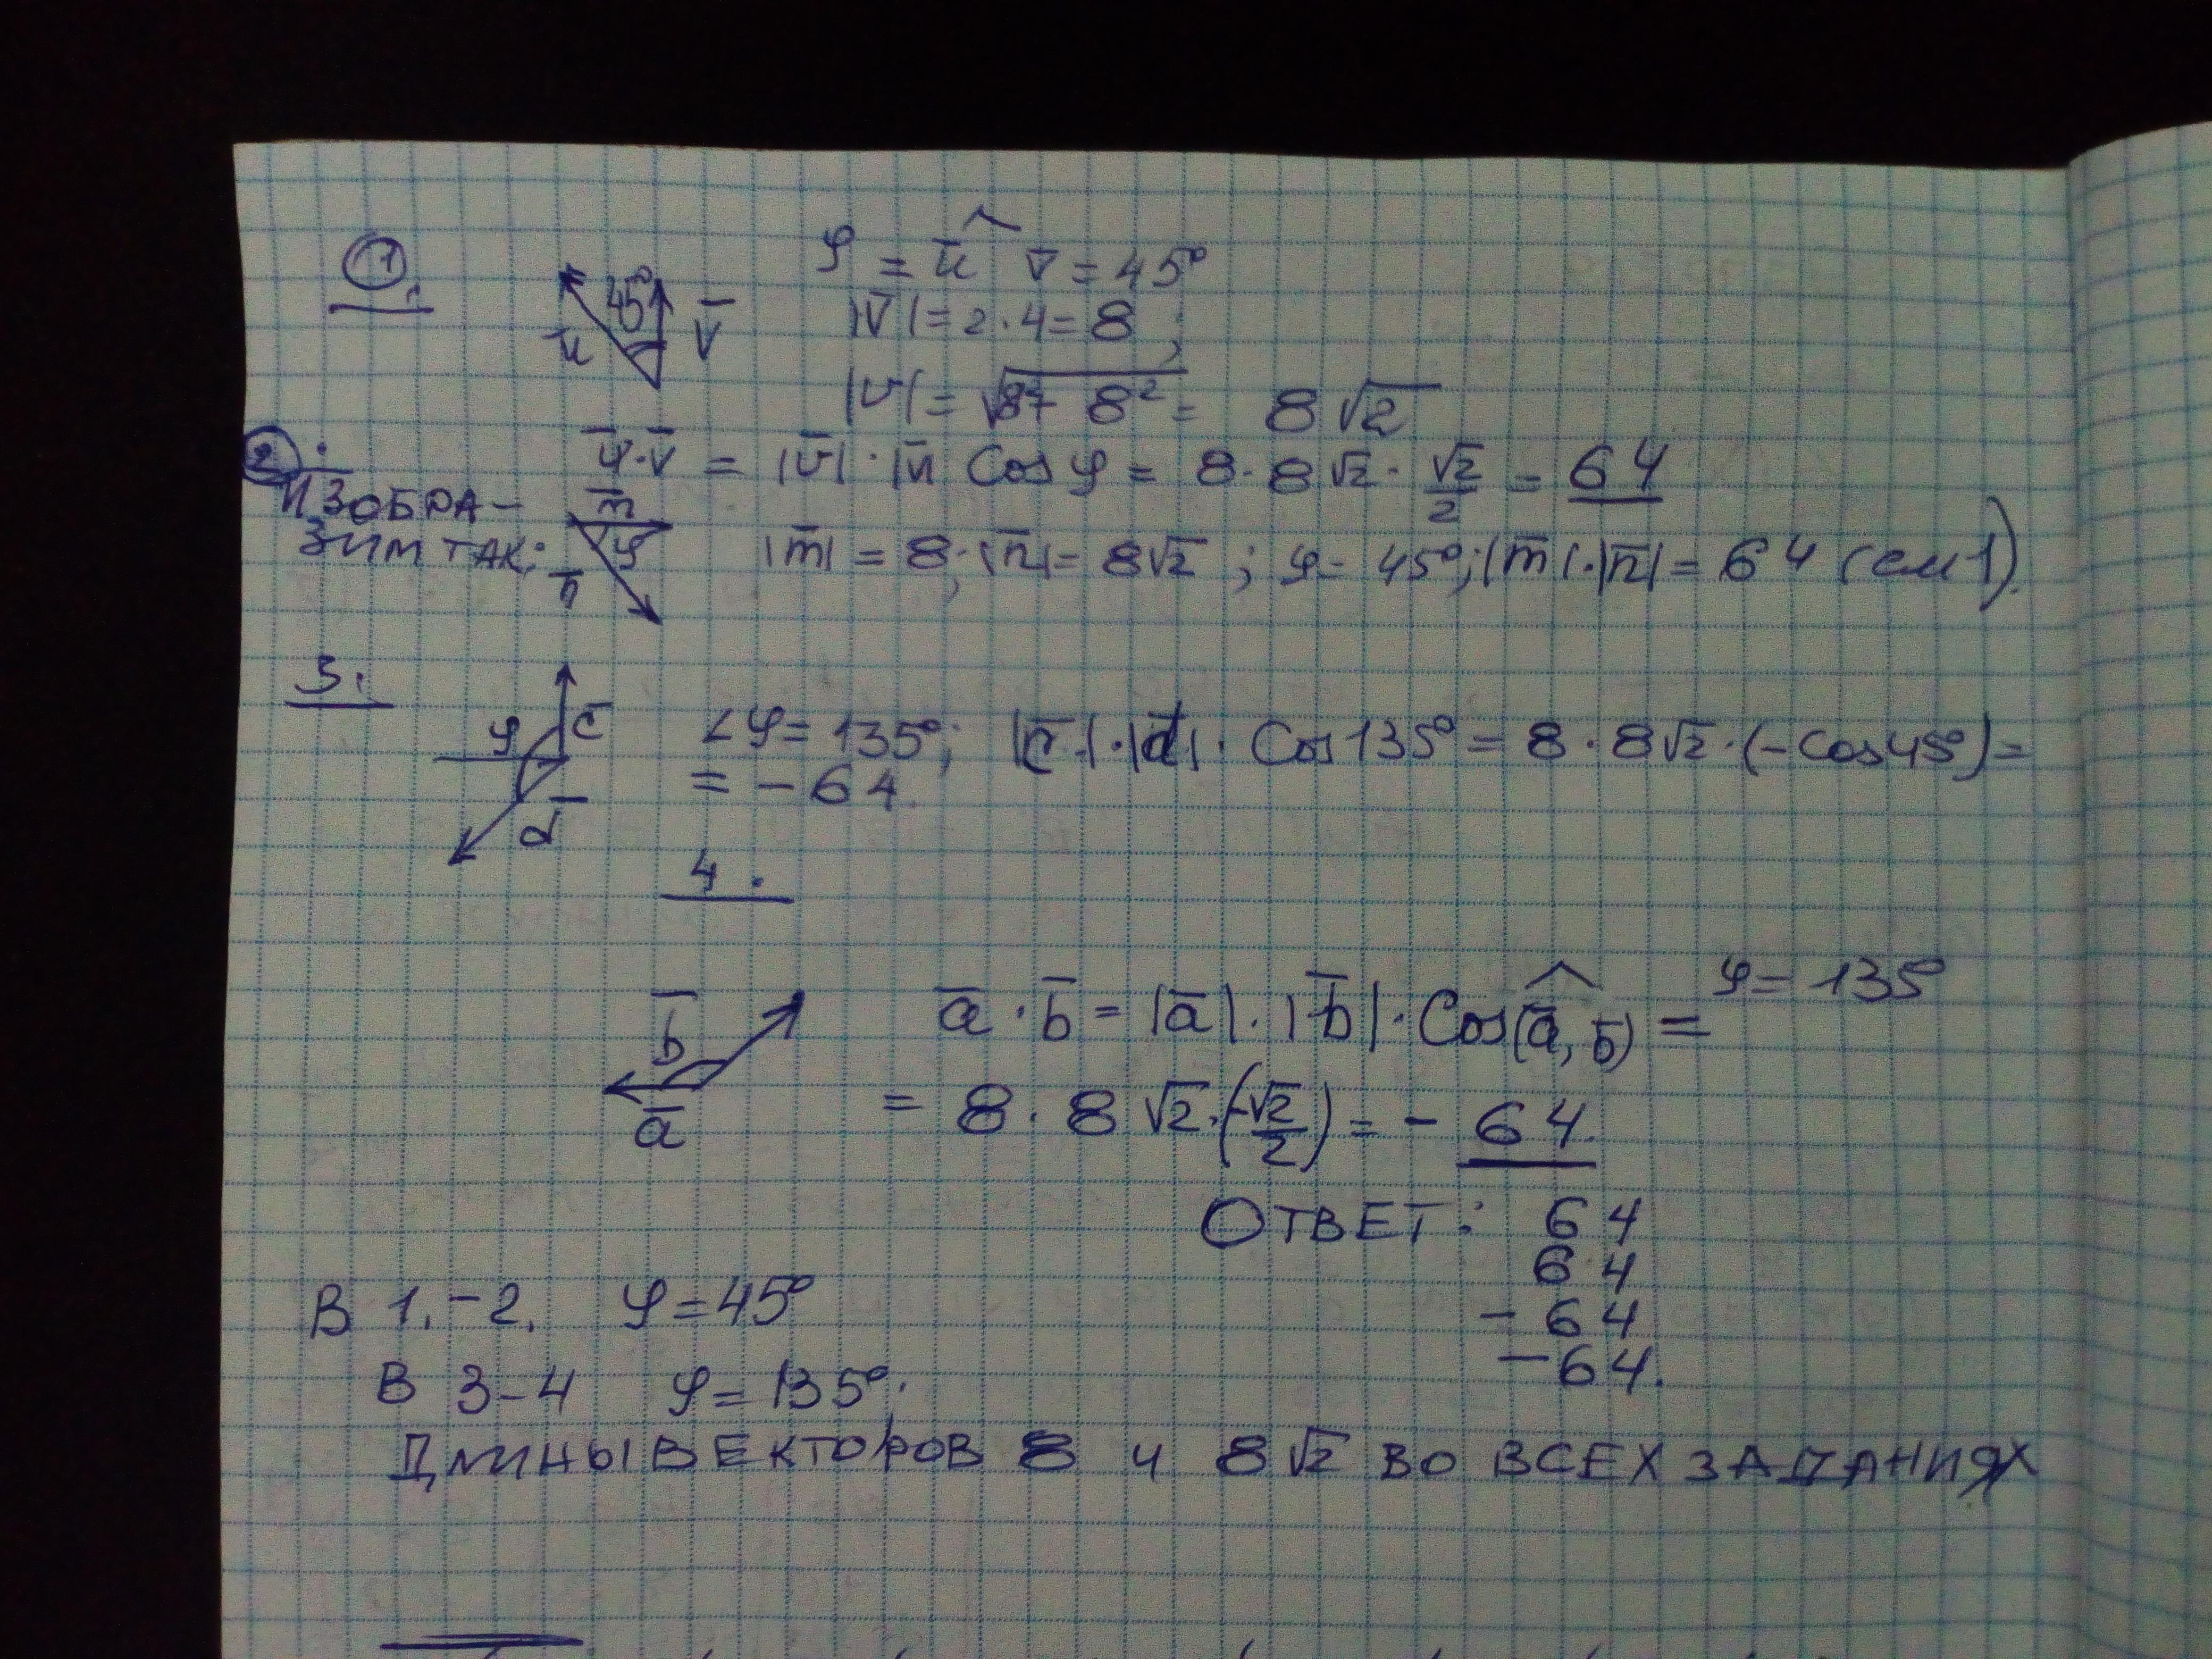 1.
45°
u̅ v̅
φ = u̅ ^ v̅ = 45°
|v̅| = 2·4 = 8;
|v| = √(8²+ 8²) = 8√2
u̅·v̅ = |v̅|·|u̅ Cos φ = 8·8√2·√2/2 = 64
2.
ИЗОБРА-
ЗИМ ТАК:
m̅
φ
n̅
|m̅| = 8; |n̅| = 8√2 ; φ = 45°; |m̅|·|n̅| = 64 (см 1).
3.
φ c̅
d̅
∠φ = 135°; |c̅|·|d̅|· Cos 135° = 8·8√2·(-Cos 45°) =
= -64
4.
b̅
a̅
a̅·b̅ = |a̅|·|b̅|·Cos(a̅, b̅) = φ = 135°
= 8·8√2·(-√2/2) = - 64.
ОТВЕТ: 64
64
-64
-64.
В 1.-2. φ = 45°
В 3-4 φ = 135°.
ДЛИНЫ ВЕКТОРОВ 8 и 8√2 ВО ВСЕХ ЗАДАНИЯХ